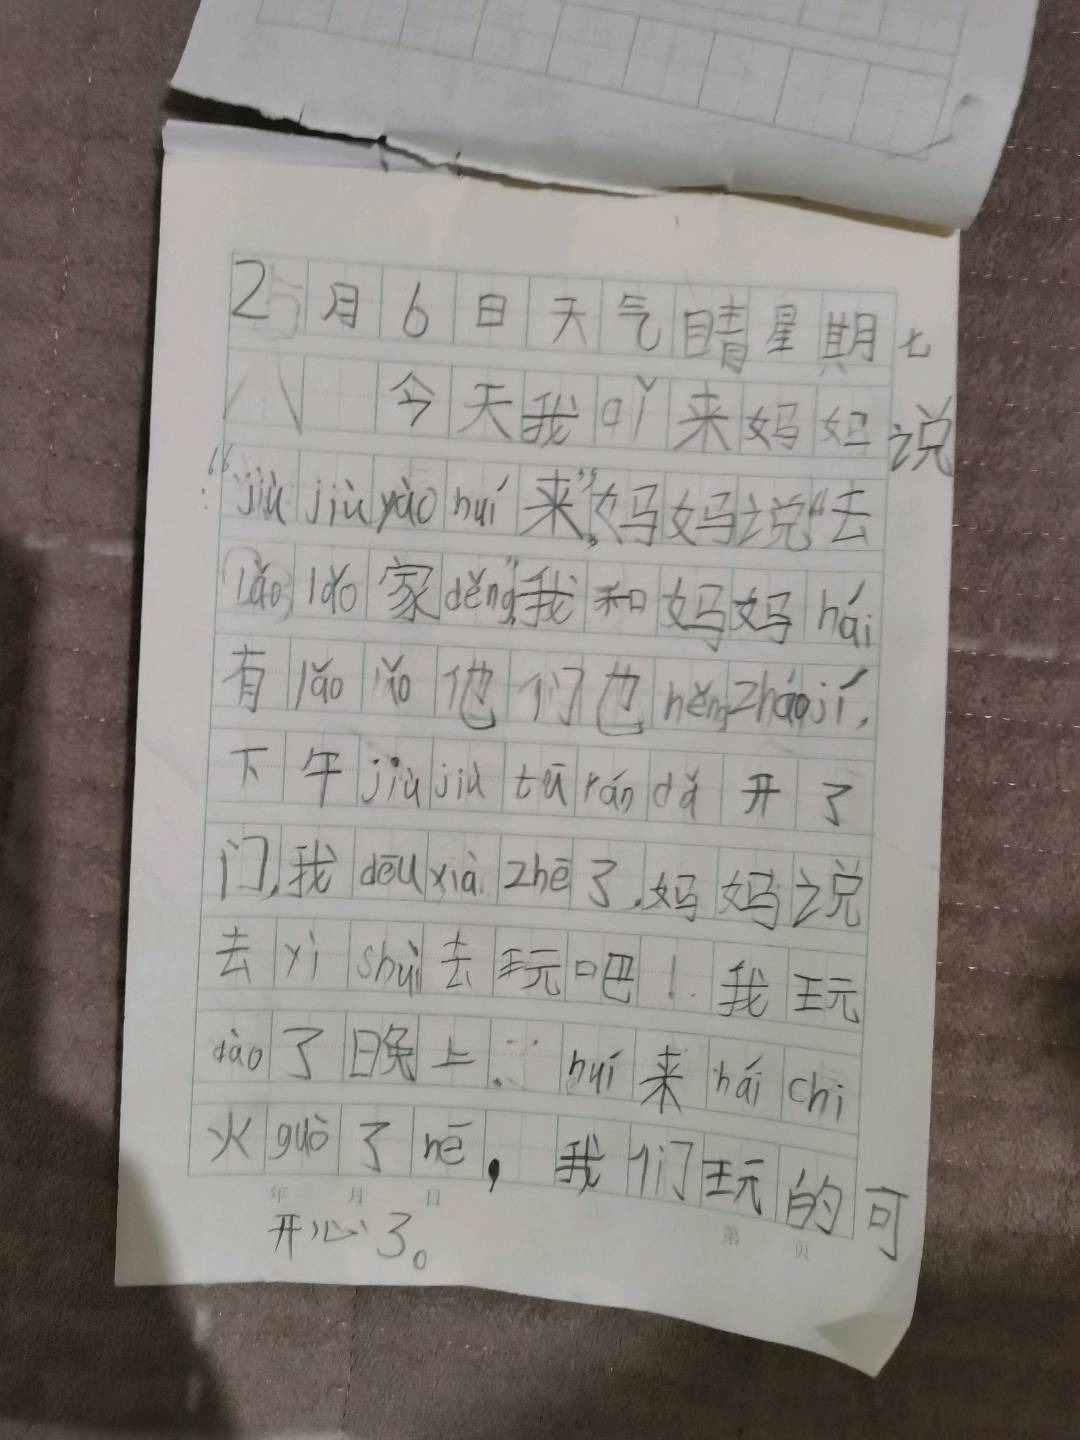 2月6日天气晴星期七
今天我qǐ来妈妈说
“jiù jiù yào huí 来”,妈妈说“去
lǎo lǎo 家děng”,我和妈妈hái
有lǎo lǎo 他们也hěng zháo jí,
下午jiù jiù tū rán dǎ 开了
门,我dōu xià zhē 了,妈妈说
去yì shuì 去玩吧!我玩
dào 了晚上. huí 来hái chi
火guō 了nē,我们玩的可
年 月 日
开心了。
第 页